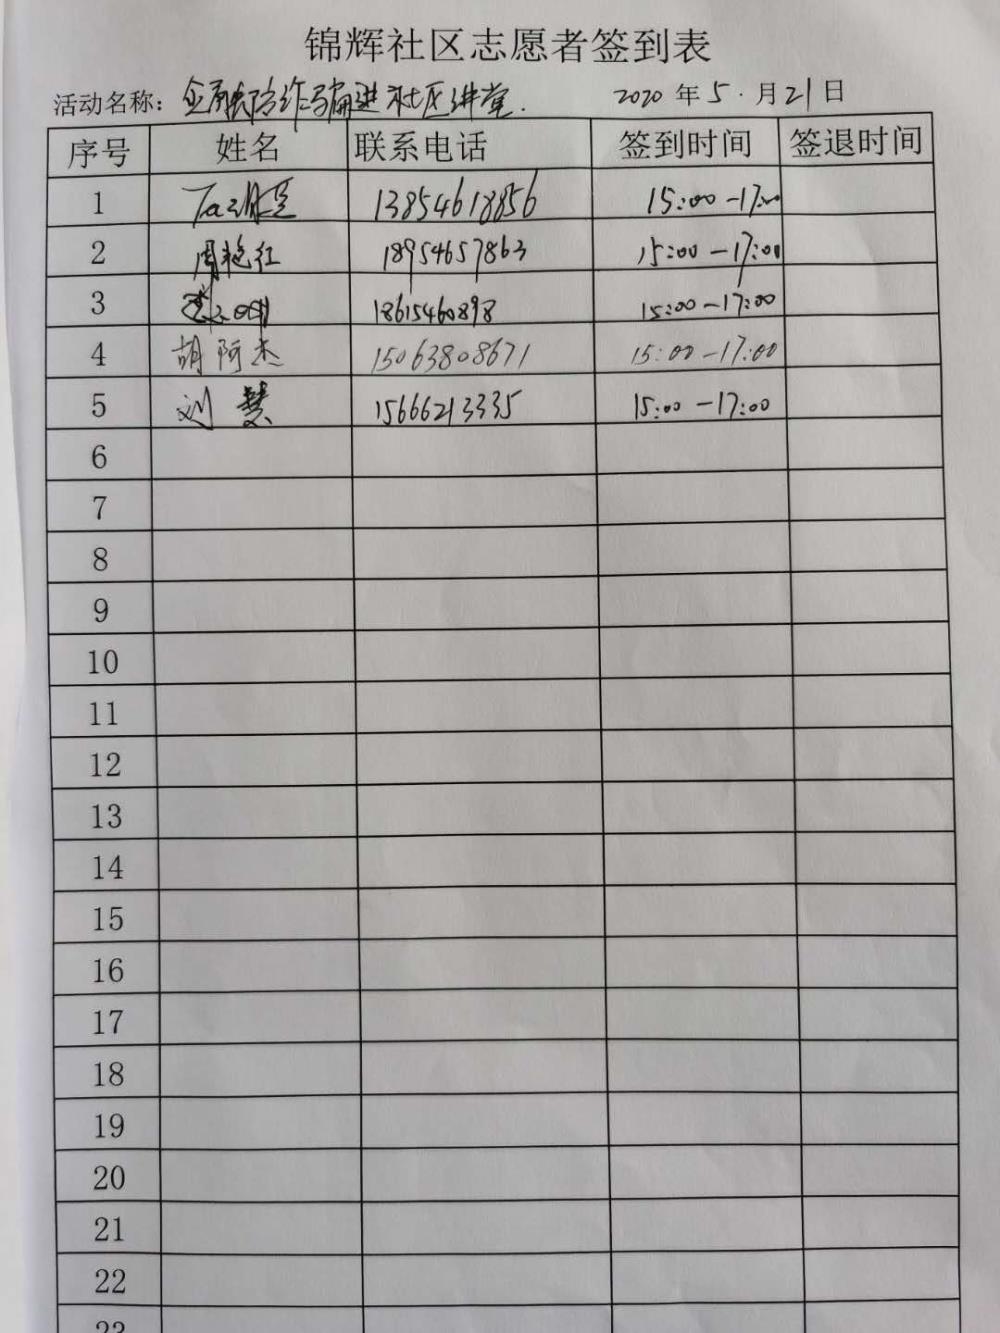 锦辉社区志愿者签到表
活动名称：金融防诈骗进社区讲堂. 2020 年 5 · 月 21 日
序号 姓名 联系电话 签到时间 签退时间
1 13854618856 15:00-17:00
2 周艳红 18954657863 15:00-17:00
3 18615460898 15:00-17:00
4 胡阿杰 15063808671 15:00-17:00
5 刘慧 15666213335 15:00-17:00
6
7
8
9
10
11
12
13
14
15
16
17
18
19
20
21
22
23